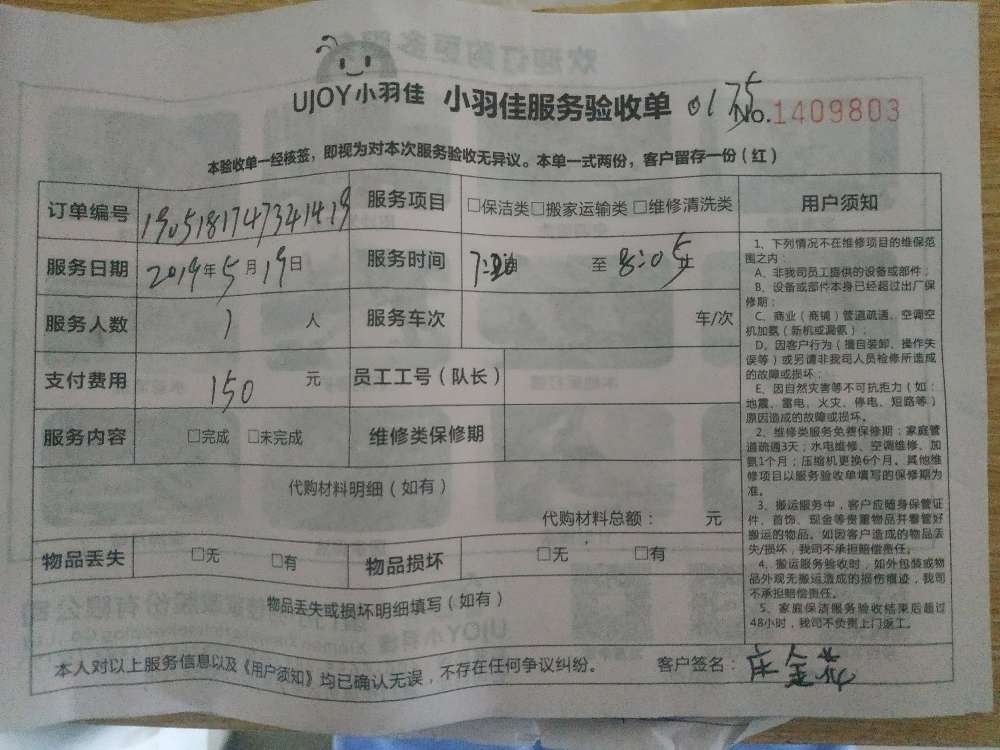 UJOY小羽佳 小羽佳服务验收单 0175 No.1409803
本验收单一经核签，即视为对本次服务验收无异议。本单一式两份，客户留存一份（红）
订单编号 1905181747341419 服务项目 □保洁类□搬家运输类□维修清洗类
服务日期 2019年5月19日 服务时间 至 8:05
服务人数 1 人 服务车次 车/次
支付费用 150 元 员工工号（队长）
服务内容 □完成 □未完成 维修类保修期
代购材料明细（如有）
代购材料总额： 元
物品丢失 □无 □有 物品损坏 □无 □有
物品丢失或损坏明细填写（如有）
用户须知
1、下列情况不在维修项目的维保范
围之内：
A、非我司员工提供的设备或部件；
B、设备或部件本身已经超过出厂保
修期；
C、商业（商铺）管道疏通、空调空
机加氨（新机或漏氨）；
D、因客户行为（擅自装卸、操作失
误等）或另请非我司人员检修所造成
的故障或损坏；
E、因自然灾害等不可抗拒力（如：
地震、雷电、火灾、停电、短路等）
原因造成的故障或损坏。
2、维修类服务免费保修期：家庭管
道疏通3天；水电维修、空调维修、加
氨1个月；压缩机更换6个月。其他维
修项目以服务验收单填写的保修期为
准。
3、搬运服务中，客户应随身保管证
件、首饰、现金等贵重物品并看管好
搬运的物品。如因客户造成的物品丢
失/损坏，我司不承担赔偿责任。
4、搬运服务验收时，如外包装或物
品外观无搬运造成的损伤痕迹，我司
不承担赔偿责任。
5、家庭保洁服务验收结束后超过
48小时，我司不负责上门返工。
本人对以上服务信息以及《用户须知》均已确认无误，不存在任何争议纠纷。 客户签名：